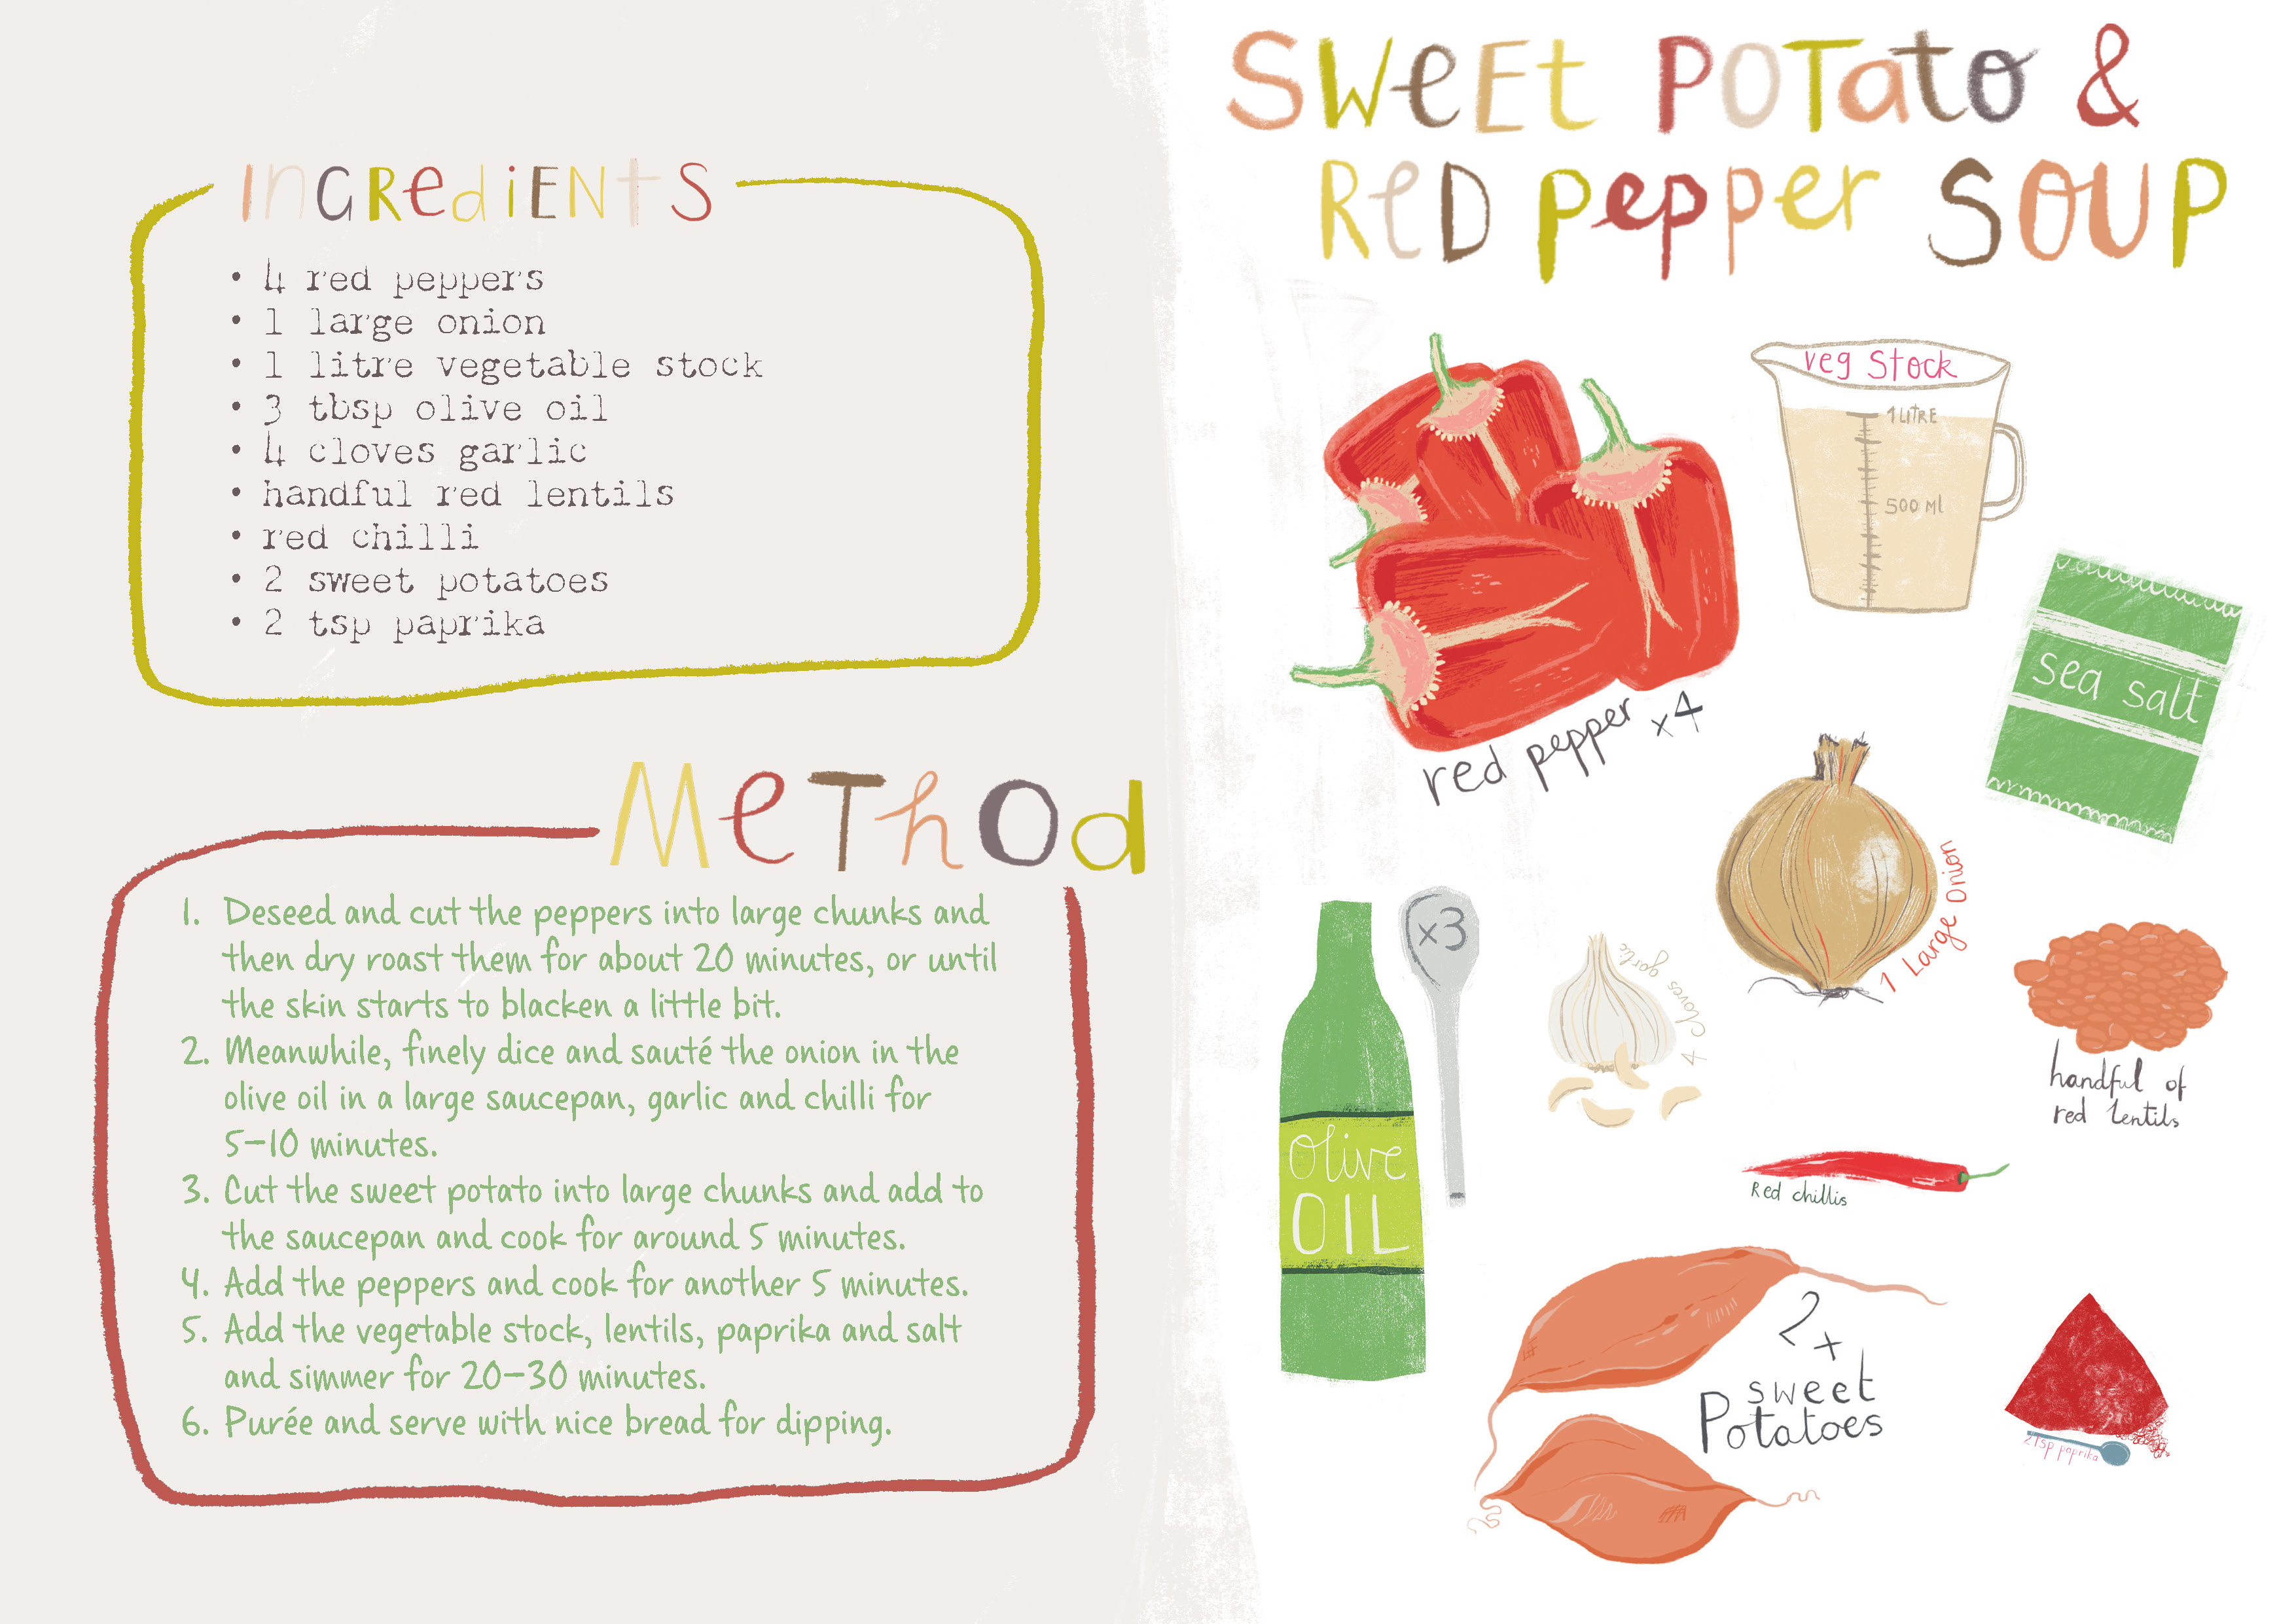 INGREdiENtS
• 4 red peppers
• 1 large onion
• 1 litre vegetable stock
• 3 tbsp olive oil
• 4 cloves garlic
• handful red lentils
• red chilli
• 2 sweet potatoes
• 2 tsp paprika
MeThOd
1. Deseed and cut the peppers into large chunks and
then dry roast them for about 20 minutes, or until
the skin starts to blacken a little bit.
2. Meanwhile, finely dice and sauté the onion in the
olive oil in a large saucepan, garlic and chilli for
5-10 minutes.
3. Cut the sweet potato into large chunks and add to
the saucepan and cook for around 5 minutes.
4. Add the peppers and cook for another 5 minutes.
5. Add the vegetable stock, lentils, paprika and salt
and simmer for 20-30 minutes.
6. Purée and serve with nice bread for dipping.
SWeEt POTato &
ReD pepper SOUP
veg Stock
1 LITRE
500 Ml
red pepper x4
sea salt
1 Large Onion
x3
4 cloves garlic
Olive
OIL
handful of
red lentils
Red chillis
2 x
sweet
Potatoes
2 tsp paprika